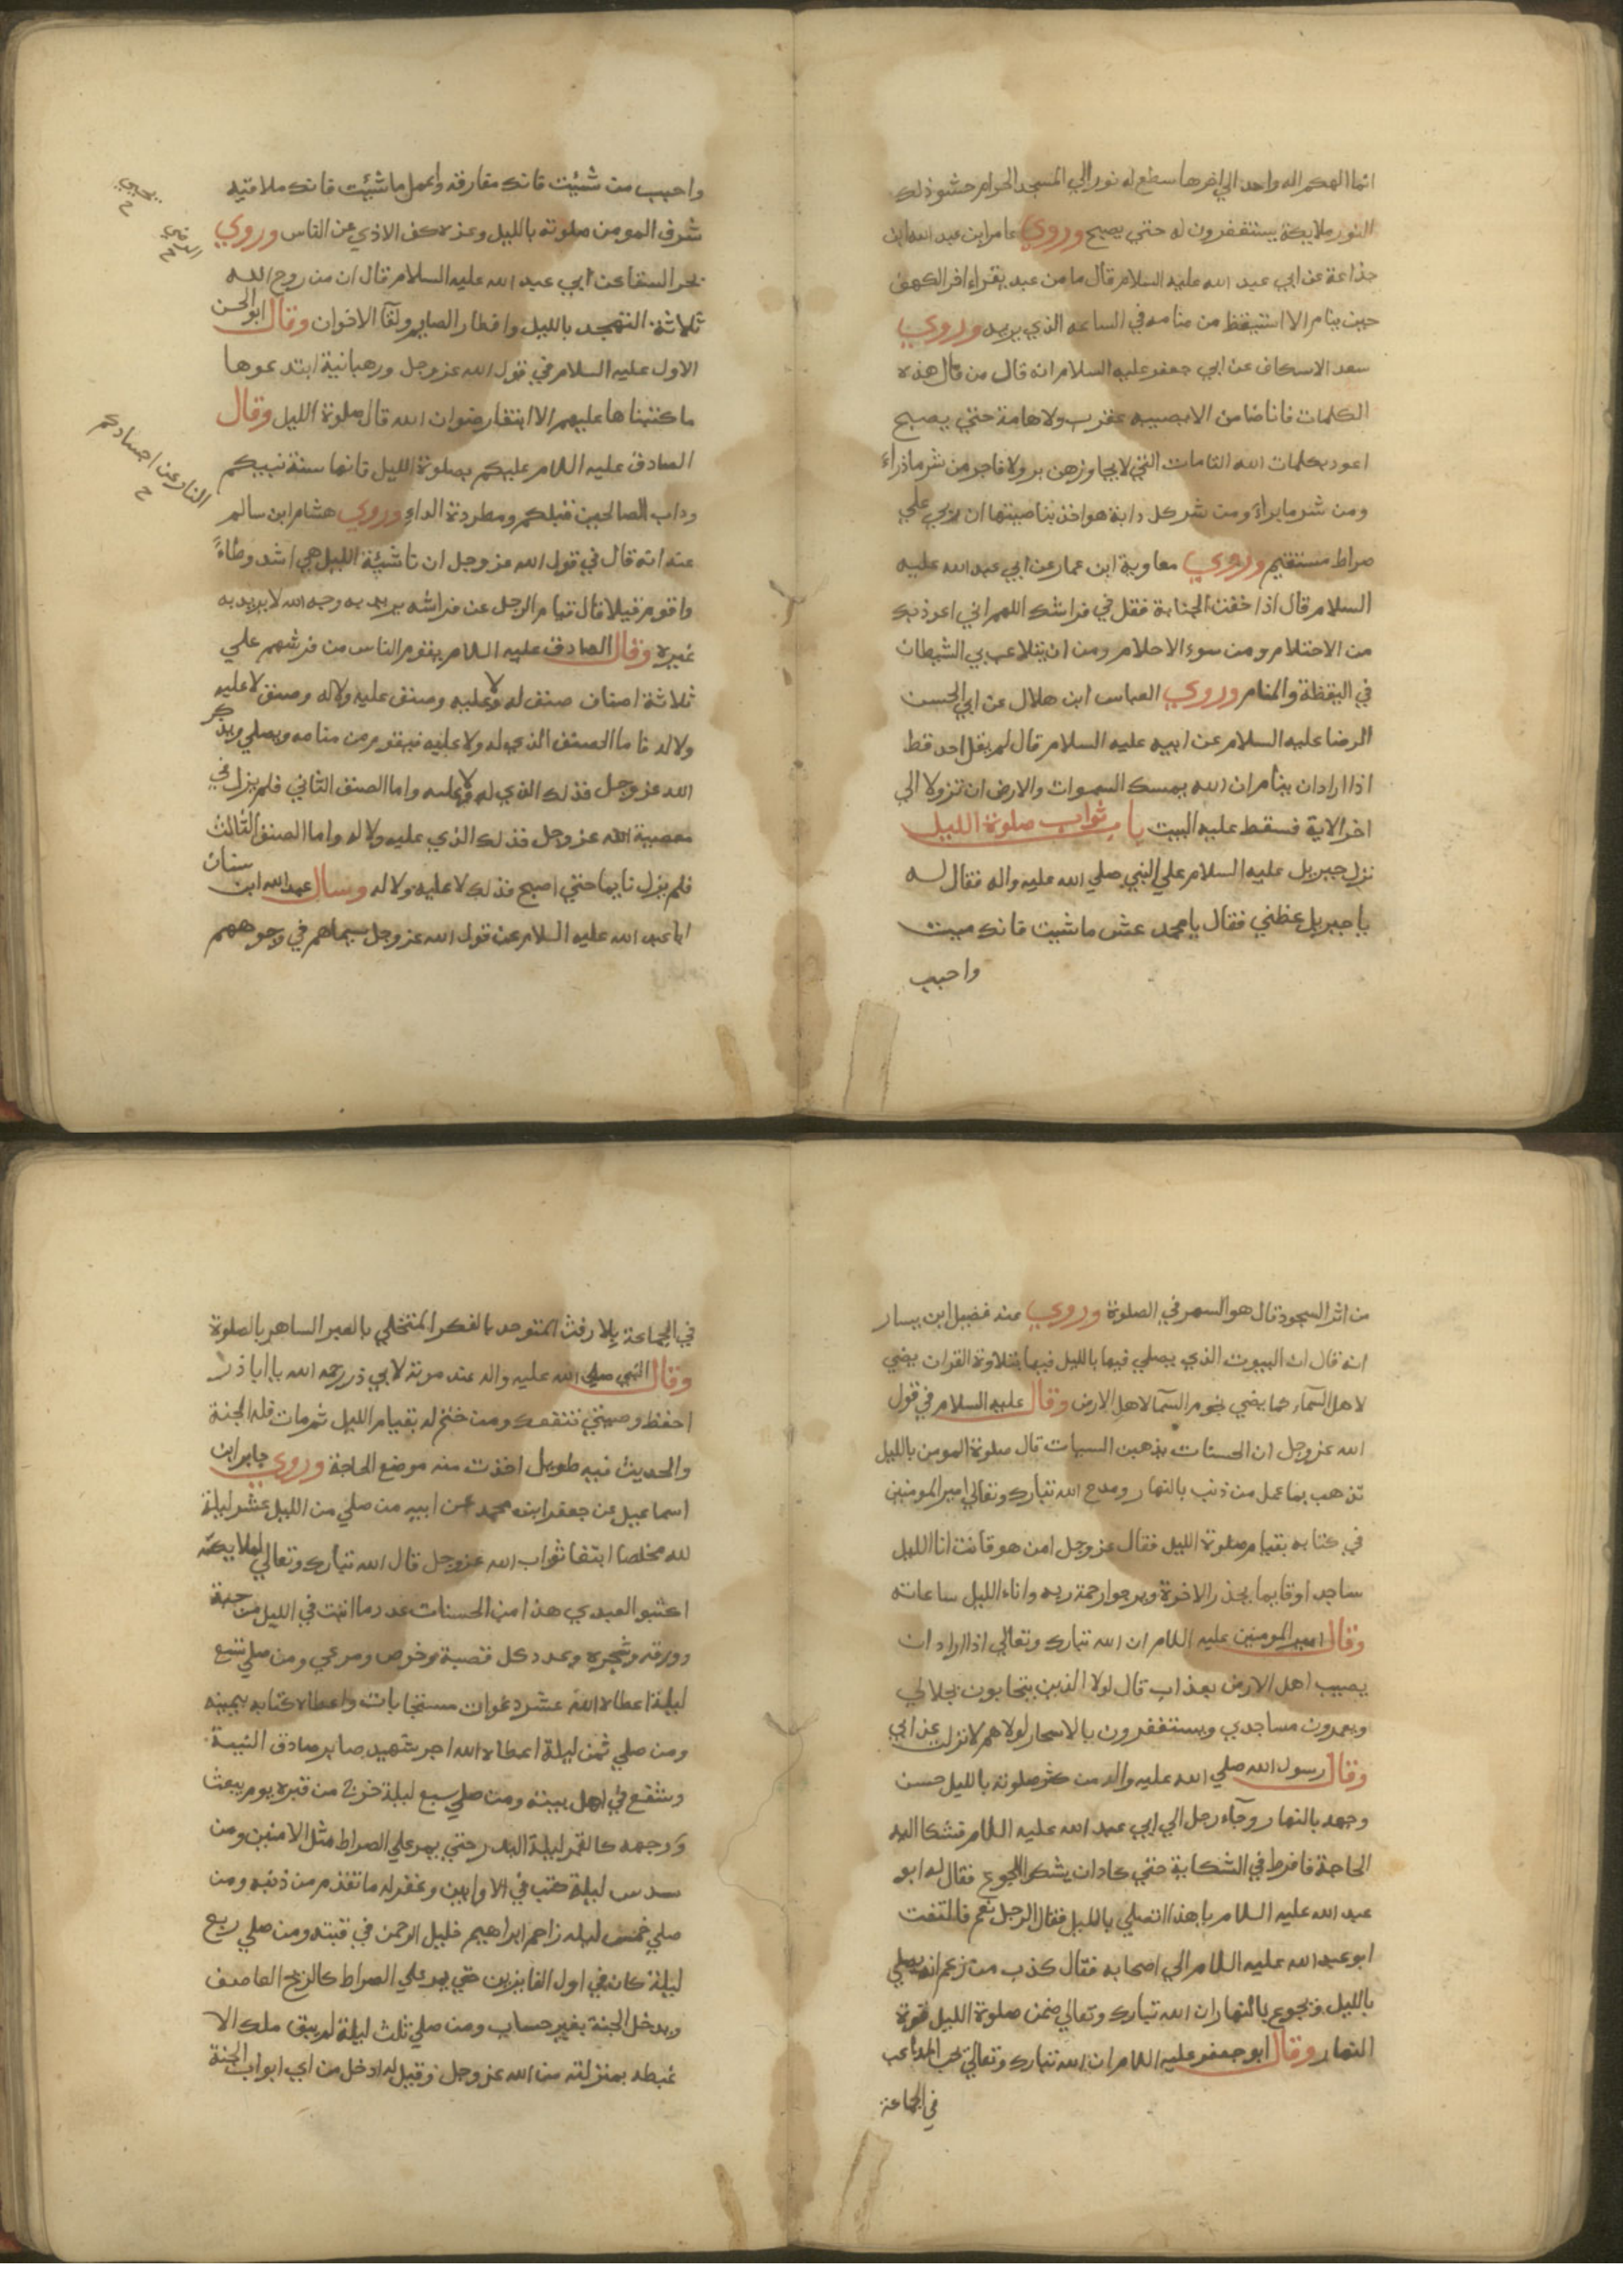 انما الهكم اله واحد الي اخرها سطع له نور الي المسجد الحرام حشو ذلك
النور ملايكة يستغفرون له حتي يصبح وروي عامر ابن عبد الله ابن
جذاعة عن ابي عبد الله عليه السلام قال ما من عبد يقراء اخر الكهف
حين ينام الا استيقظ من منامه في الساعه الذي يريد وروي
سعد الاسكاف عن ابي جعفر عليه السلام انه قال من قال هذه
الكلمات فانا ضامن الا يصيبه عقرب ولا هامة حتي يصبح
اعوذ بكلمات الله التامات التي لا يجاوزهن بر ولا فاجر من شر ما ذراء
ومن شر ما براء ومن شر كل دابة هو اخذ بناصيتها ان ربي علي
صراط مستقيم وروي معاوية ابن عمار عن ابي عبد الله عليه
السلام قال اذا خفت الجنابة فقل في فراشك اللهم اني اعوذ بك
من الاحتلام ومن سوء الاحلام ومن ان يتلاعب بي الشيطان
في اليقظة والمنام وروي العباس ابن هلال عن ابي الحسن
الرضا عليه السلام عن ابيه عليه السلام قال لم يقل احد قط
اذا اراد ان ينام ان الله يمسك السموات والارض ان تزولا الي
اخر الاية فسقط عليه البيت باب ثواب صلوة الليل
نزل جبريل عليه السلام علي النبي صلي الله عليه واله فقال له
يا جبريل عظني فقال يا محمد عش ما شيت فانك ميت
واحبب
واحبب من شئيت فانك مفارقه واعمل ما شئيت فانك ملاقيه
شرف المومن صلوته بالليل وعزه كف الاذي عن الناس وروي
بحر السقا عن ابي عبد الله عليه السلام قال ان من روح الله
ثلاثة التهجد بالليل وافطار الصايم ولقآ الاخوان وقال ابو الحسن
الاول عليه السلام في قول الله عز وجل ورهبانية ابتدعوها
ما كتبناها عليهم الا ابتغا رضوان الله قال صلوة الليل وقال
الصادق عليه اللام عليكم بصلوة الليل فانها سنة نبيكم
وداب الصالحين قبلكم ومطردة الداء وروي هشام ابن سالم
عنه انه قال في قول الله عز وجل ان ناشيئة الليل هي اشد وطاءً
واقوم قيلا قال قيام الرجل عن فراشه يريد به وجه الله لا يريد به
غيره وقال الصادق عليه اللام يقوم الناس من فرشهم علي
ثلاثة اصناف صنف له ولا عليه وصنف عليه ولا له وصنف لا عليه
ولا له فاما الصنف الذي له ولا عليه فيقوم من منامه ويصلي ويذكر
الله عز وجل فذلك الذي له ولا عليه واما الصنف الثاني فلم يزل في
معصية الله عز وجل فذلك الذي عليه ولا له واما الصنف الثالث
فلم يزل نايما حتي اصبح فذلك لا عليه ولا له وسال عبد الله ابن سنان
ابا عبد الله عليه السلام عن قول الله عز وجل سيماهم في وجوههم
النار عن اجسادكم
من اثر السجود قال هو السهر في الصلوة وروي عنه فضيل ابن يسار
انه قال ان البيوت الذي يصلي فيها بالليل فيها بتلاوة القران يضي
لاهل السمآء كما يضي نجوم السمآ لاهل الارض وقال عليه السلام في قول
الله عز وجل ان الحسنات يذهبن السيات قال صلوة المومن بالليل
تذهب بما عمل من ذنب بالنهار ومدح الله تبارك وتعالي امير المومنين
في كتابه بقيام صلوة الليل فقال عز وجل امن هو قانت انا الليل
ساجد او قايما يحذر الاخرة ويرجوا رحمة ربه واناء الليل ساعاته
وقال امير المومنين عليه اللام ان الله تبارك وتعالي اذا اراد ان
يصيب اهل الارض بعذاب قال لولا الذين يتحابون بجلالي
ويعمرون مساجدي ويستغفرون بالاسحار لولاهم لانزلت عذابي
وقال رسول الله صلي الله عليه واله من كثر صلوته بالليل حسن
وجهه بالنهار وجآء رجل الي ابي عبد الله عليه اللام فشكا اليه
الحاجة فافرط في الشكاية حتي كاد ان يشكو الجوع فقال له ابو
عبد الله عليه اللام يا هذا اتصلي بالليل فقال الرجل نعم فالتفت
ابو عبد الله عليه اللام الي اصحابه فقال كذب من زعم انه يصلي
بالليل ويجوع بالنهار ان الله تبارك وتعالي ضمن صلوة الليل قوة
النهار وقال ابو جعفر عليه اللام ان الله تبارك وتعالي يحب المداعب
في الجماعة
في الجماعة بلا رفث المتوحد بالفكر المتخلي بالعبر الساهر بالصلوة
وقال النبي صلي الله عليه واله عند موته لابي ذر رحمه الله يا ابا ذر
احفظ وصيتي تنفعك ومن ختم له بقيام الليل ثم مات فله الجنة
والحديث فيه طويل اخذت منه موضع الحاجة وروي جابر ابن
اسماعيل عن جعفر ابنه محمد عن ابيه من صلي من الليل عشر ليلة
لله مخلصا ابتغا ثواب الله عز وجل قال الله تبارك وتعالي لملايكته
اكتبوا لعبدي هذا من الحسنات عدد ما انبت في الليل من حبة
وورقة وشجره وعدد كل قصبة وخوص ومرعي ومن صلي تسع
ليلة اعطاه الله عشر دعوات مستجابات واعطاه كتابه بيمينه
ومن صلي ثمن ليلة اعطاه الله اجر شهيد صابر صادق النيية
وشفع في اهل بيته ومن صلي سبع ليلة خرج من قبره يوم يبعث
ووجهه كالقمر ليلة البدر حتي يمر علي الصراط مثل الامنين ومن
سدس ليلة كتب في الاوابين وغفر له ما تقدم من ذنبه ومن
صلي خمس ليله زاحم ابراهيم خليل الرحمن في قبته ومن صلي ربع
ليلة كان في اول الفايزين حتي يمر علي الصراط كالريح العاصف
ويدخل الجنة بغير حساب ومن صلي ثلث ليلة لم يبق ملك الا
غبطه بمنزلته من الله عز وجل وقيل له ادخل من اي ابواب الجنة